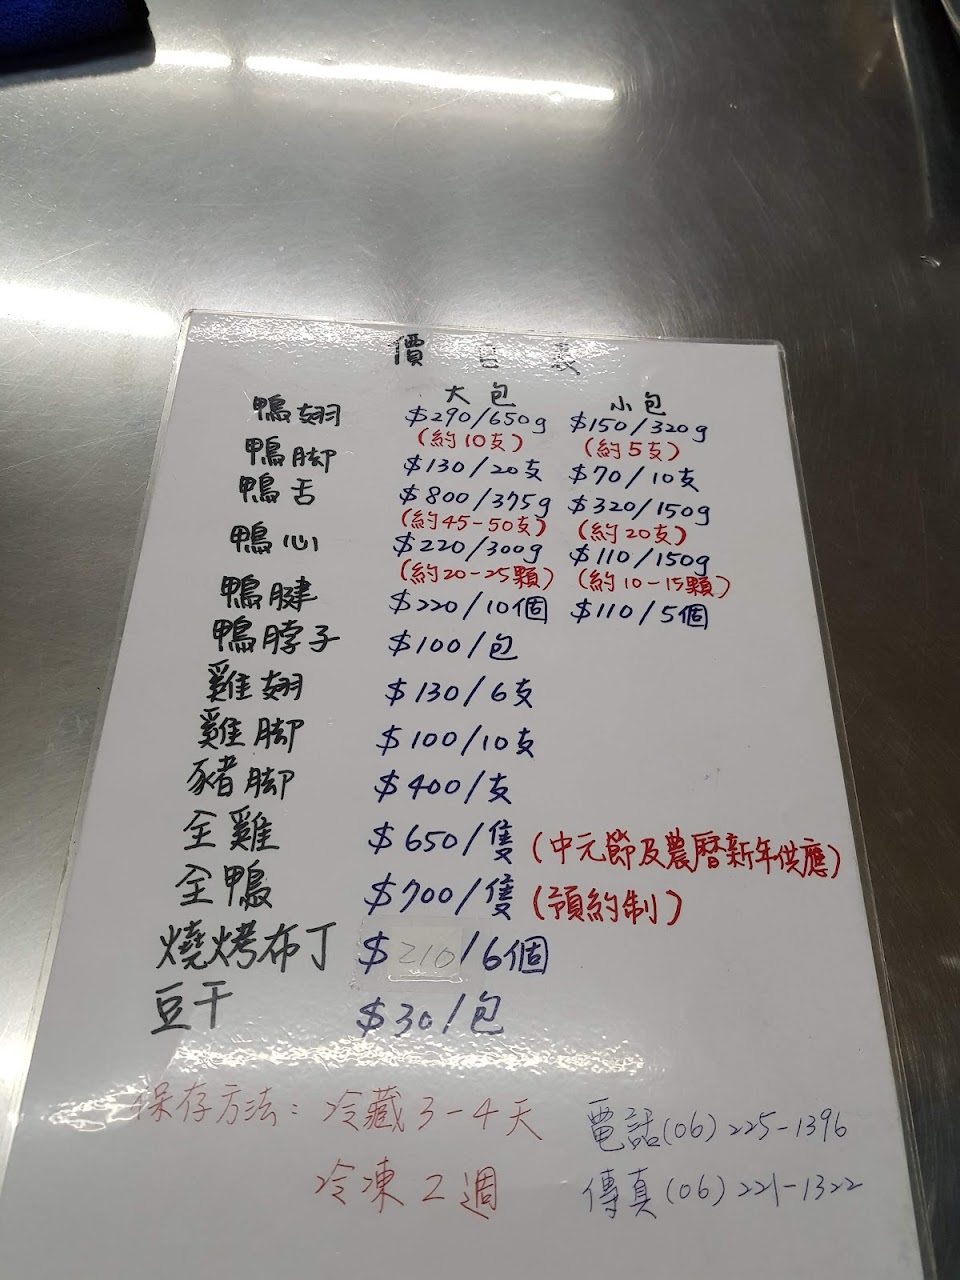 價目表
大包 小包
鴨翅 $290/650g $150/320g
(約10支) (約5支)
鴨脚 $130/20支 $70/10支
鴨舌 $800/375g $320/150g
(約45-50支) (約20支)
鴨心 $220/300g $110/150g
(約20-25顆) (約10-15顆)
鴨腱 $220/10個 $110/5個
鴨脖子 $100/包
雞翅 $130/6支
雞脚 $100/10支
豬脚 $400/支
全雞 $650/隻 (中元節及農曆新年供應)
全鴨 $700/隻 (預約制)
燒烤布丁 $210/6個
豆干 $30/包
保存方法：冷藏3-4天
冷凍2週
電話(06)225-1396
傳真(06)221-1322